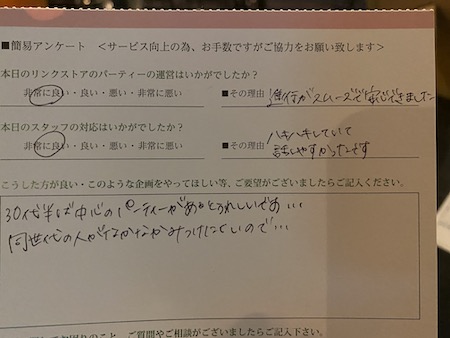 ■簡易アンケート ＜サービス向上の為、お手数ですがご協力をお願い致します＞
本日のリンクストアのパーティーの運営はいかがでしたか？
非常に良い・良い・悪い・非常に悪い ■その理由 進行がスムーズで安心できました
本日のスタッフの対応はいかがでしたか？
非常に良い・良い・悪い・非常に悪い ■その理由 ハキハキしていて
話しやすかったです
こうした方が良い・このような企画をやってほしい等、ご要望がございましたらご記入ください。
30代半ば中心のパーティーがあるとうれしいであ…
同世代の人がなかなかみつけにくいので…
お困りのこと、ご質問やご相談がございましたらご記入下さい。